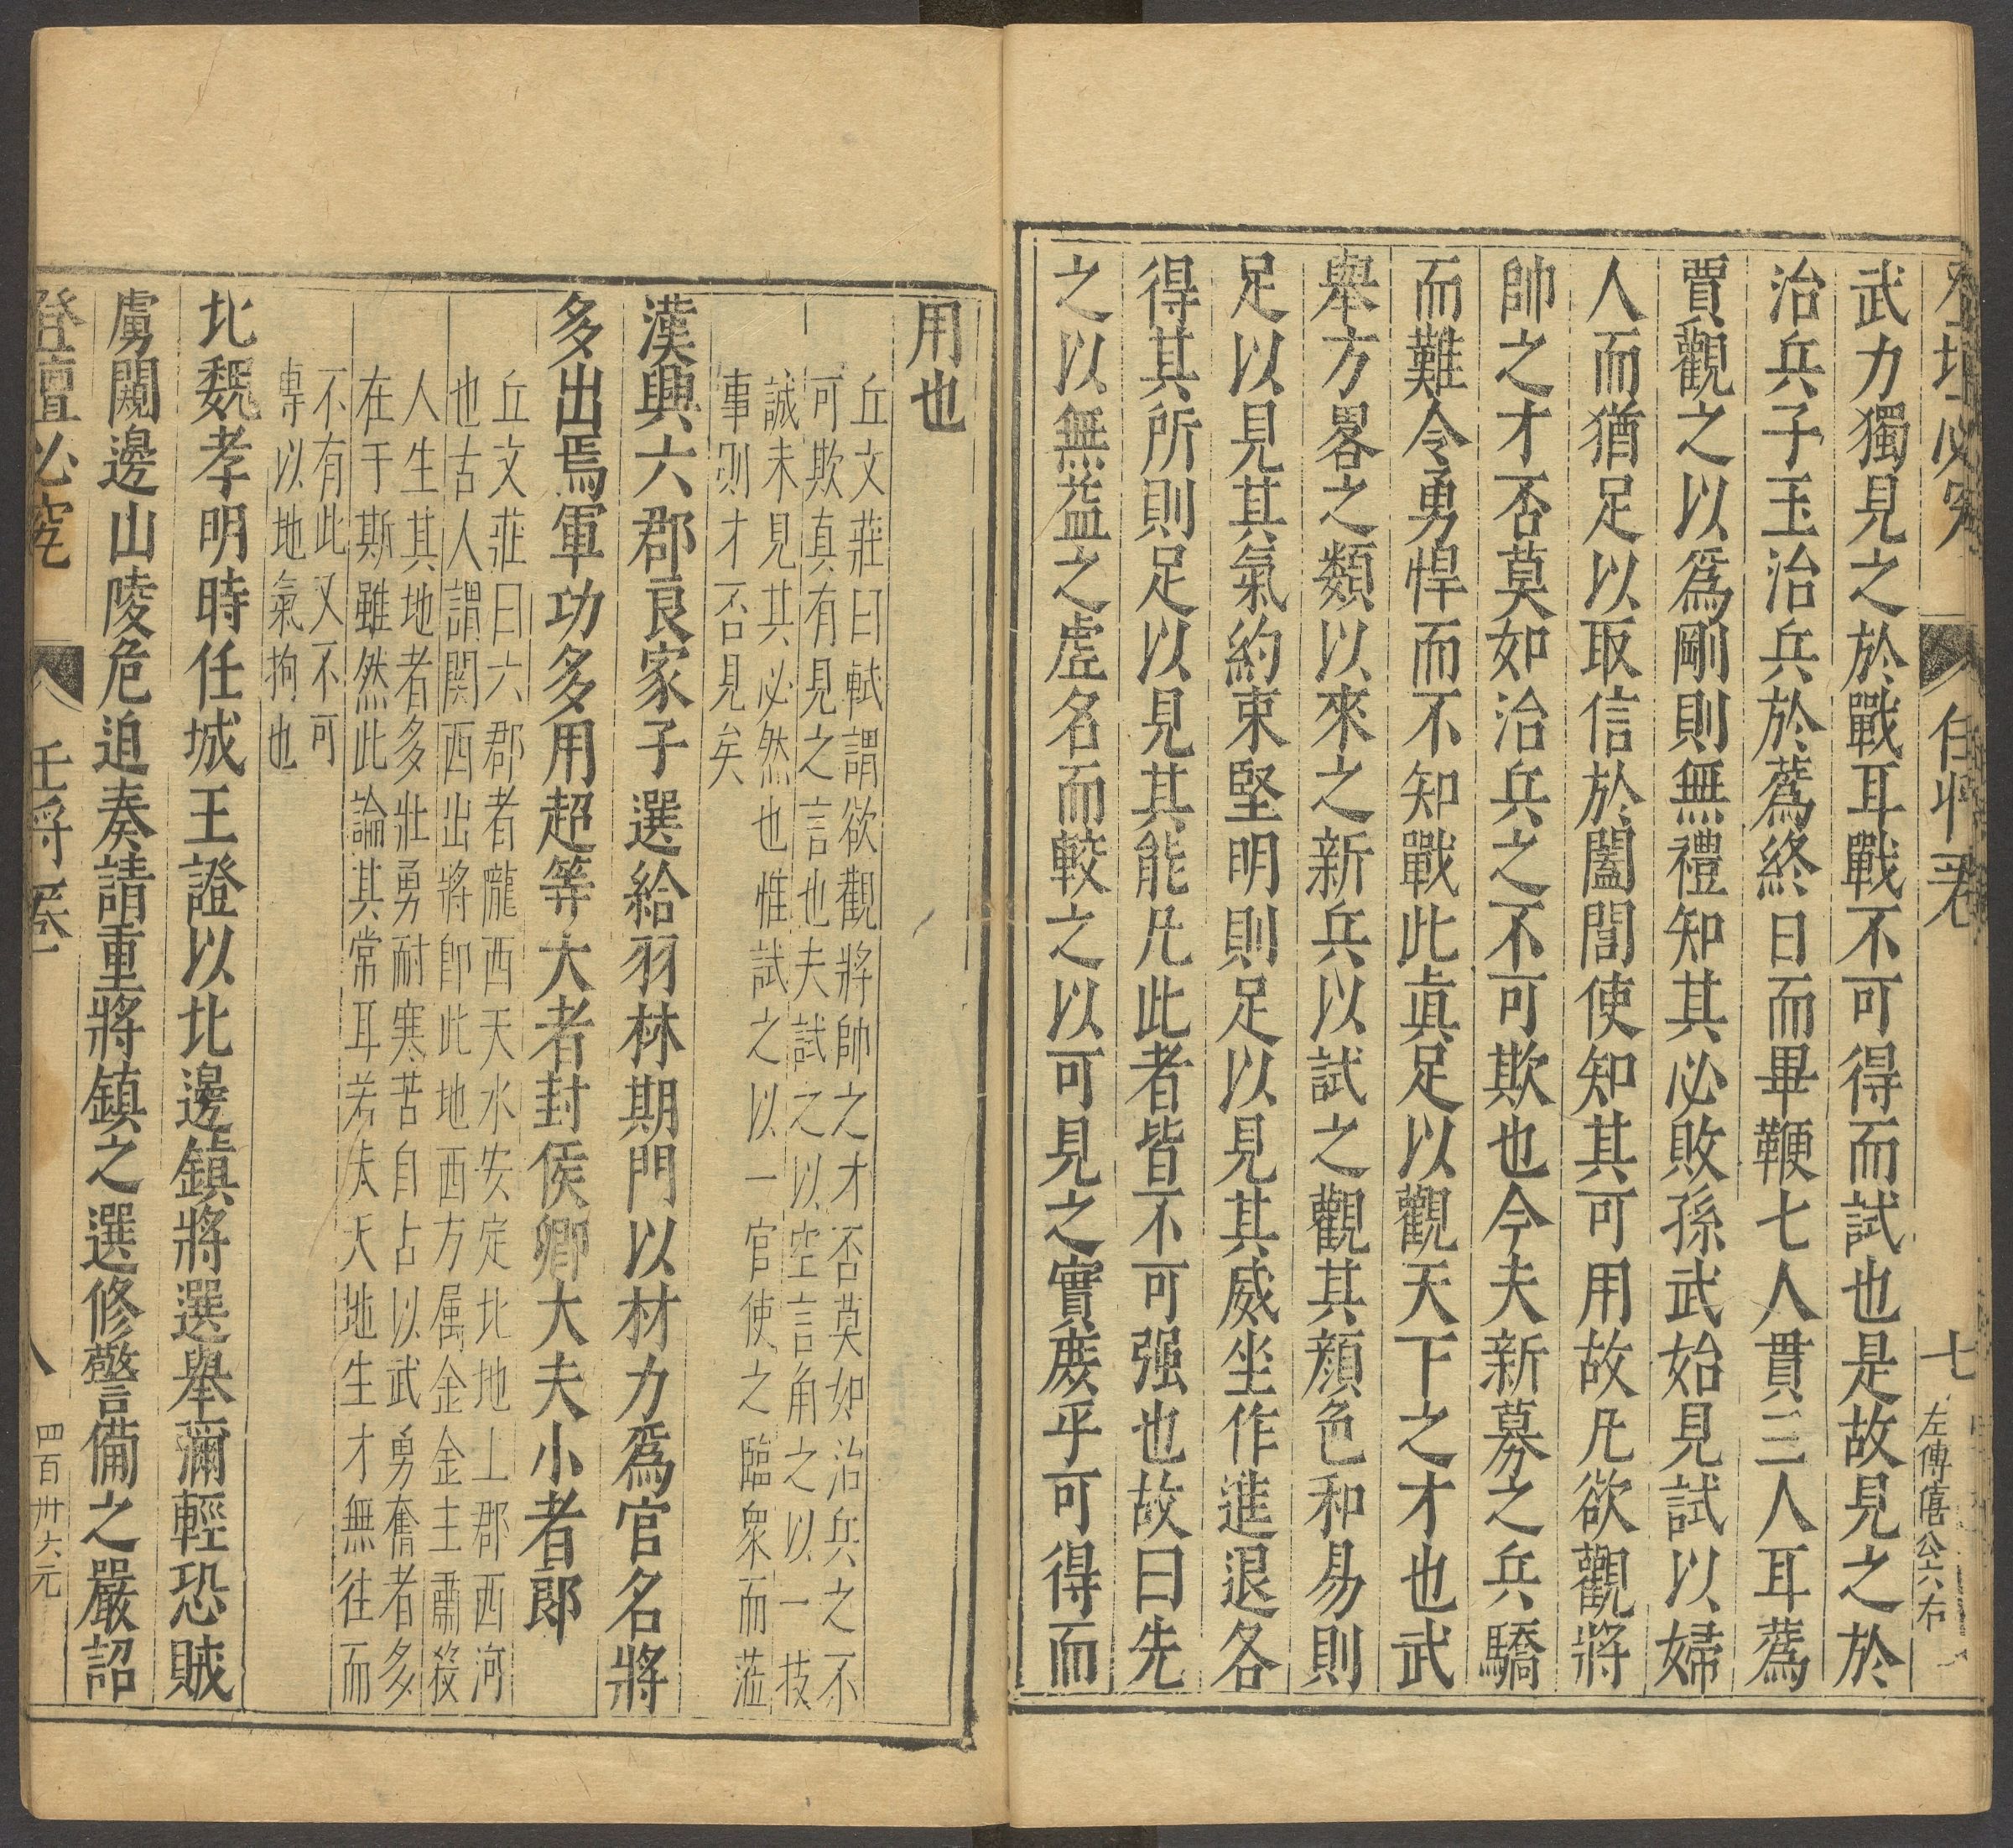 登壇必究 任將卷 七 左傳僖公六右
武力獨見之於戰耳戰不可得而試也是故見之於
治兵子玉治兵於蒍終日而畢鞭七人貫三人耳蒍
賈觀之以爲剛則無禮知其必敗孫武始見試以婦
人而猶足以取信於闔閭使知其可用故凡欲觀將
帥之才否莫如治兵之不可欺也今夫新募之兵驕
而難令勇悍而不知戰此眞足以觀天下之才也武
舉方畧之類以來之新兵以試之觀其顏色和易則
足以見其氣約束堅明則足以見其威坐作進退各
得其所則足以見其能凡此者皆不可强也故曰先
之以無益之虛名而較之以可見之實庶乎可得而
用也
丘文莊曰軾謂欲觀將帥之才否莫如治兵之不
可欺真有見之言也夫試之以空言角之以一技
誠未見其必然也惟試之以一官使之臨衆而蒞
事則才否見矣
漢興六郡良家子選給羽林期門以材力爲官名將
多出焉軍功多用超等大者封侯卿大夫小者郎
丘文莊曰六郡者隴西天水安定北地上郡西河
也古人謂関西出將卽此地西方属金金主肅殺
人生其地者多壯勇耐寒苦自占以武勇奮者多
在于斯雖然此論其常耳若夫天地生才無往而
不有此又不可
專以地氣拘也
北魏孝明時任城王證以北邊鎮將選舉彌輕恐賊
虜闚邊山陵危迫奏請重將鎮之選修警備之嚴詔
登壇必究 任將卷一 八 四百卅六元